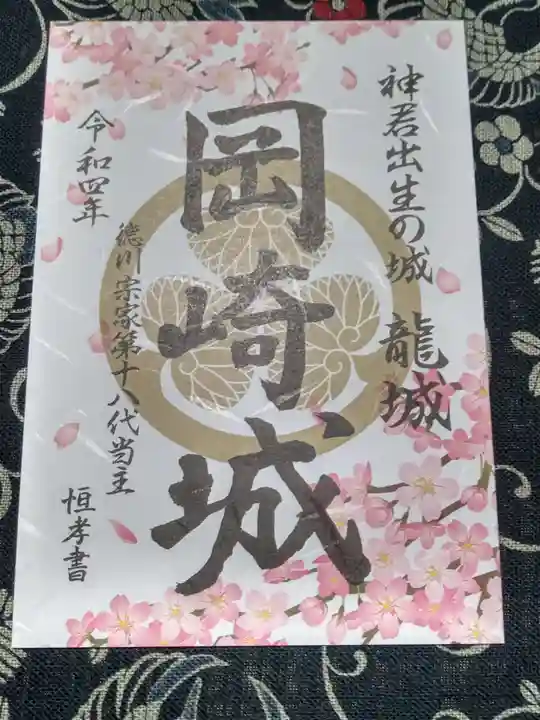 神君出生の城 龍城
岡崎城
令和四年
徳川宗家第十八代当主
恒孝書